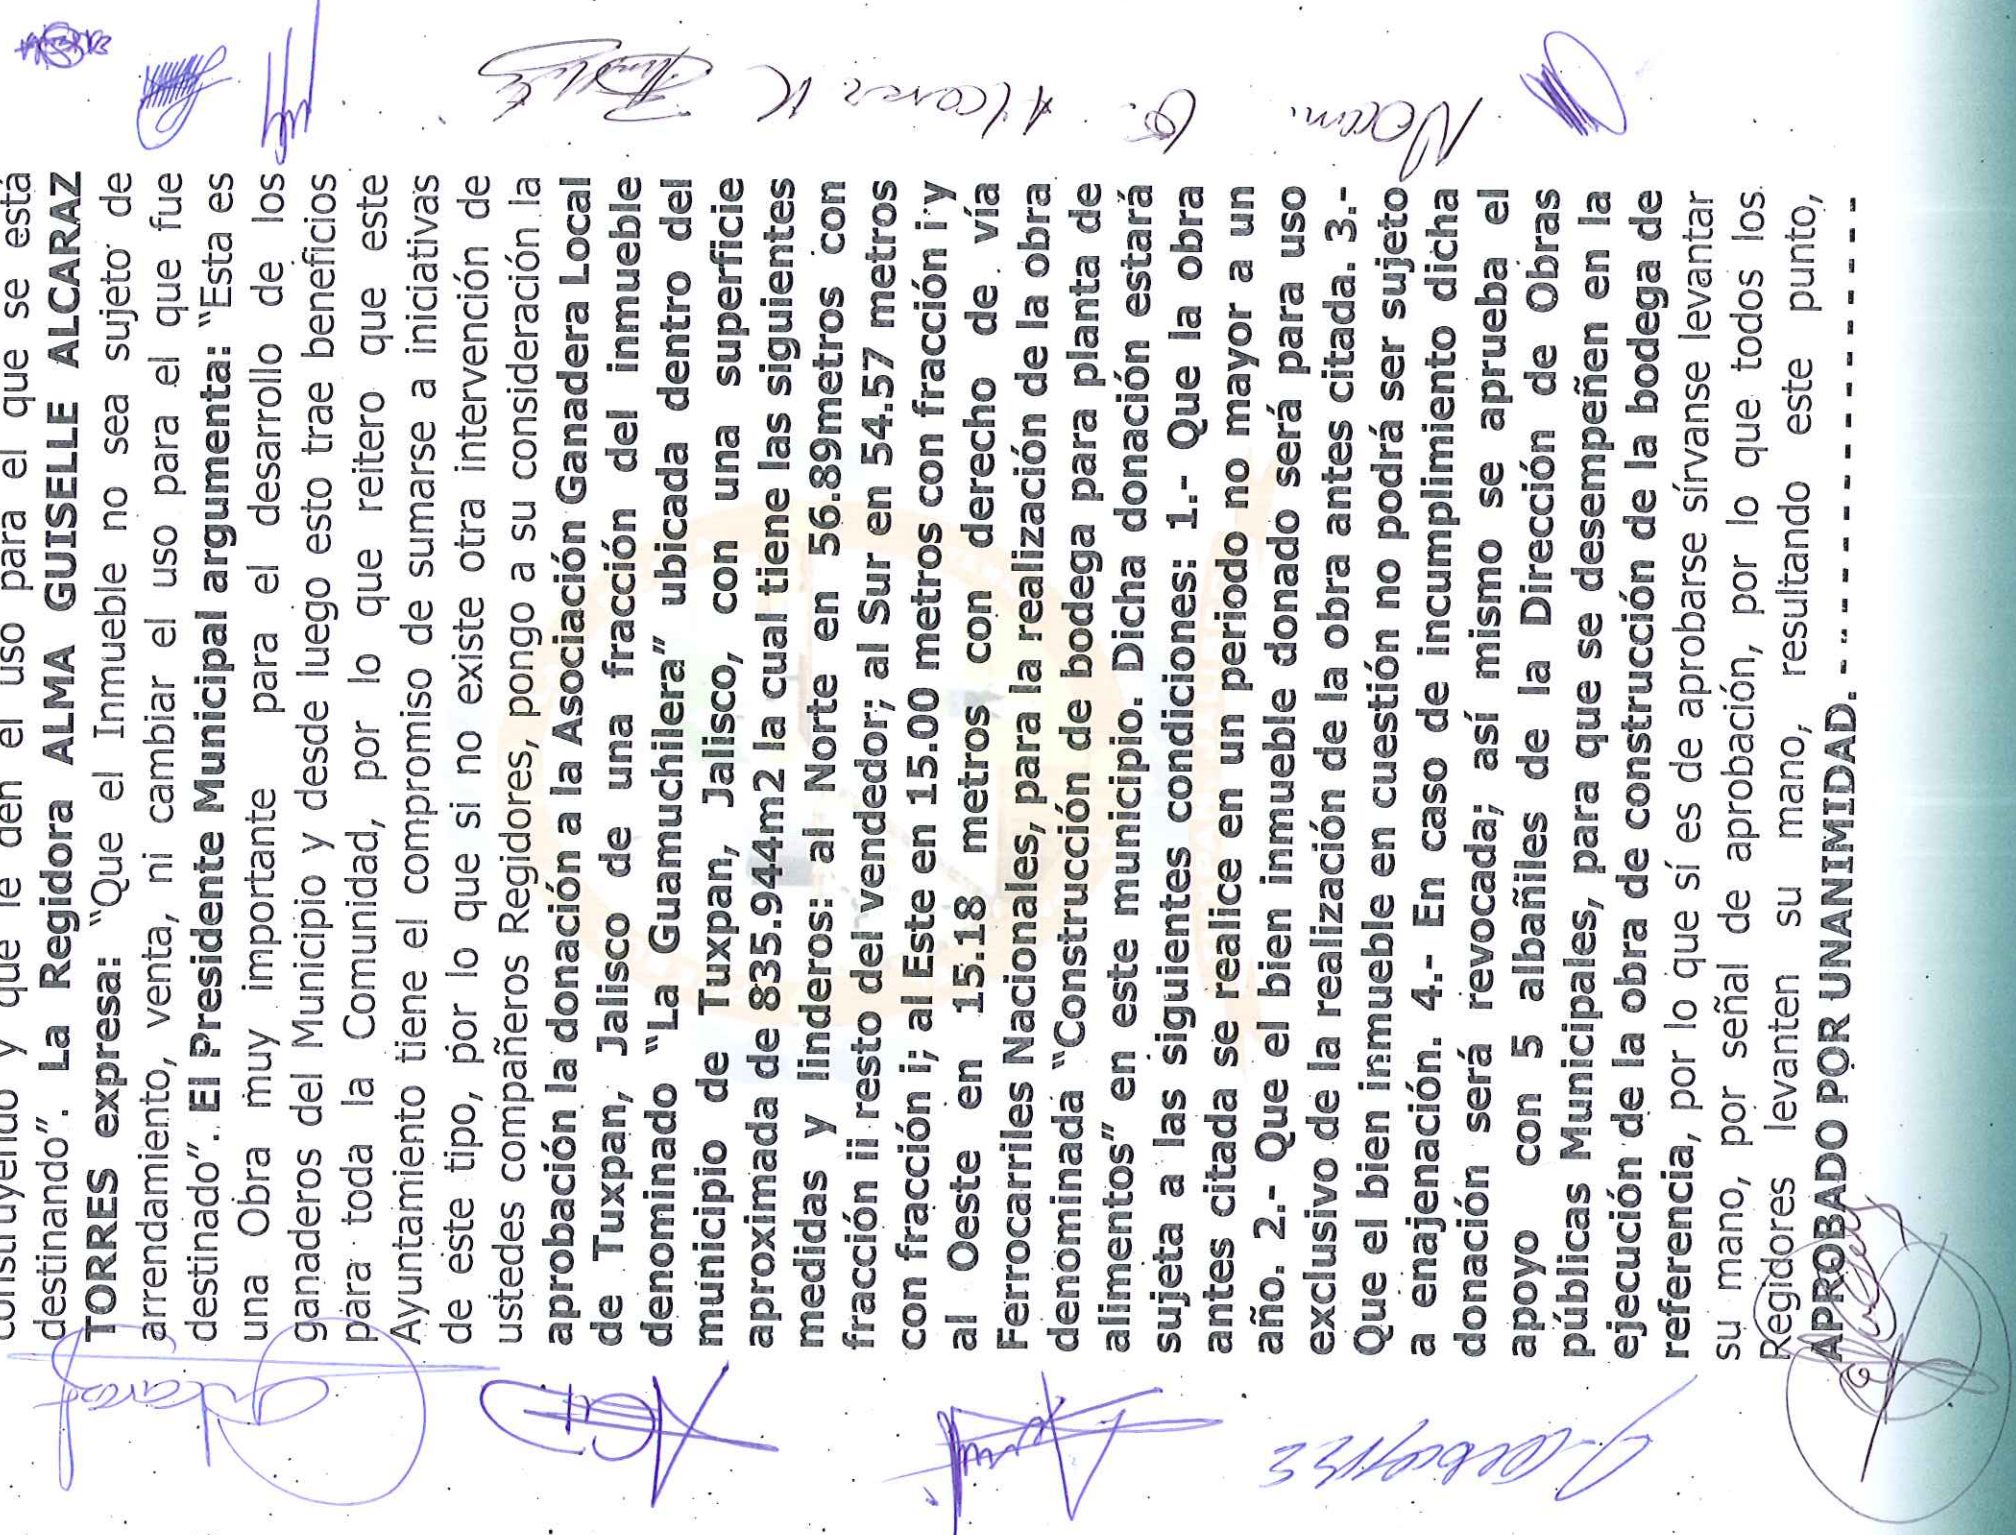 construyendo y que le den el uso para el que se está
destinando". La Regidora ALMA GUISELLE ALCARAZ
TORRES expresa: "Que el Inmueble no sea sujeto de
arrendamiento, venta, ni cambiar el uso para el que fue
destinado". El Presidente Municipal argumenta: "Esta es
una Obra muy importante para el desarrollo de los
ganaderos del Municipio y desde luego esto trae beneficios
para toda la Comunidad, por lo que reitero que este
Ayuntamiento tiene el compromiso de sumarse a iniciativas
de este tipo, por lo que si no existe otra intervención de
ustedes compañeros Regidores, pongo a su consideración la
aprobación la donación a la Asociación Ganadera Local
de Tuxpan, Jalisco de una fracción del inmueble
denominado "La Guamuchilera" ubicada dentro del
municipio de Tuxpan, Jalisco, con una superficie
aproximada de 835.944m2 la cual tiene las siguientes
medidas y linderos: al Norte en 56.89metros con
fracción iii resto del vendedor; al Sur en 54.57 metros
con fracción i; al Este en 15.00 metros con fracción i y
al Oeste en 15.18 metros con derecho de vía
Ferrocarriles Nacionales, para la realización de la obra
denominada "Construcción de bodega para planta de
alimentos" en este municipio. Dicha donación estará
sujeta a las siguientes condiciones: 1.- Que la obra
antes citada se realice en un periodo no mayor a un
año. 2.- Que el bien inmueble donado será para uso
exclusivo de la realización de la obra antes citada. 3.-
Que el bien inmueble en cuestión no podrá ser sujeto
a enajenación. 4.- En caso de incumplimiento dicha
donación será revocada; así mismo se aprueba el
apoyo con 5 albañiles de la Dirección de Obras
públicas Municipales, para que se desempeñen en la
ejecución de la obra de construcción de la bodega de
referencia, por lo que sí es de aprobarse sírvanse levantar
su mano, por señal de aprobación, por lo que todos los
Regidores levanten su mano, resultando este punto,
APROBADO POR UNANIMIDAD. - - - - - - - - - - - - - - - -